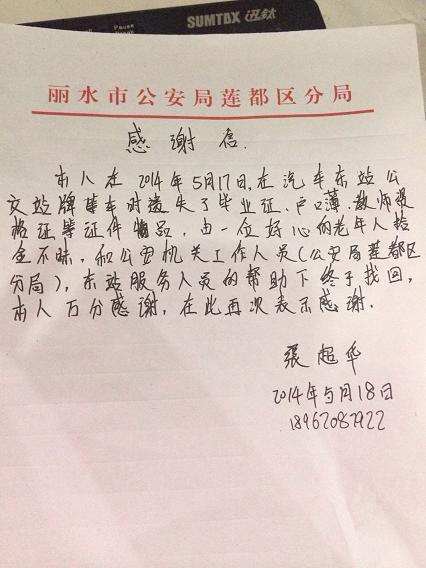 Pause
Break
SUMTAX 迅钛
丽水市公安局莲都区分局
感谢信
本人在2014年5月17日,在汽车东站公
交站牌等车时遗失了毕业证、户口薄、教师资
格证等证件物品,由一位好心的老年人拾
金不昧,和公安机关工作人员(公安局莲都区
分局),东站服务人员的帮助下终于找回,
本人万分感谢,在此再次表示感谢.
张超华
2014年5月18日